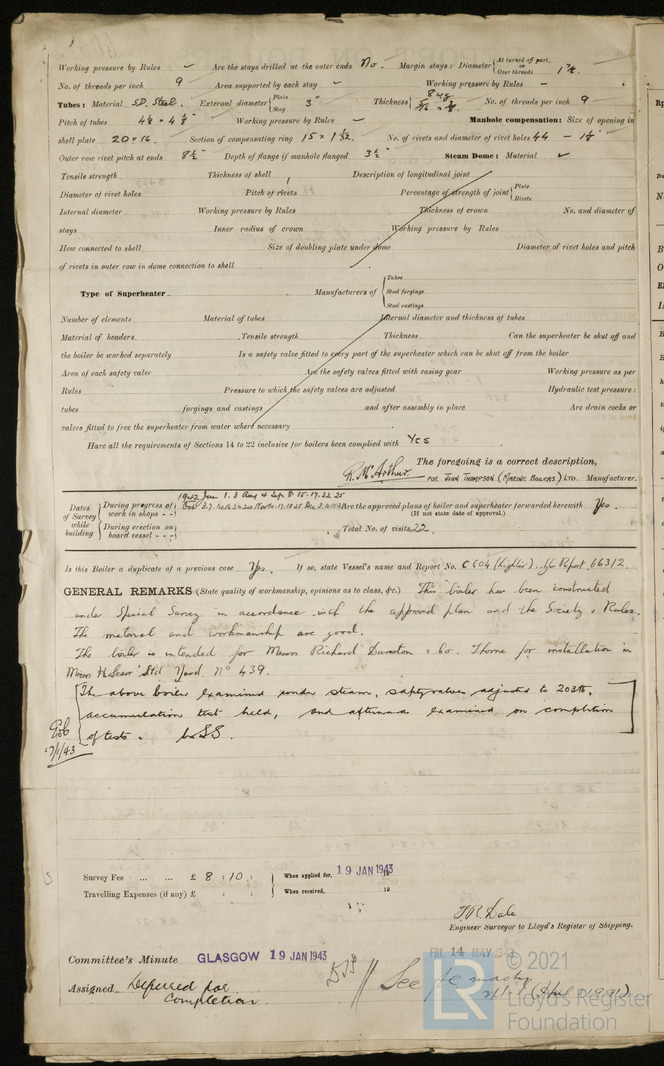 Working pressure by Rules ✓ Are the stays drilled at the outer ends No. Margin stays: Diameter { At turned off part, or Over threads 1 7/8.
No. of threads per inch 9 Area supported by each stay ✓ Working pressure by Rules -
Tubes: Material S.D. Steel. External diameter { Plain Stay 3" Thickness { 8 wg. No. of threads per inch 9
Pitch of tubes Working pressure by Rules ✓ Manhole compensation: Size of opening in
shell plate 20 × 16. Section of compensating ring No. of rivets and diameter of rivet holes 44
Outer row rivet pitch at ends 8½" Depth of flange if manhole flanged 3½" Steam Dome: Material ✓
Tensile strength Thickness of shell Description of longitudinal joint
Diameter of rivet holes Pitch of rivets Percentage of strength of joint { Plate Rivets
Internal diameter Working pressure by Rules Thickness of crown No. and diameter of
stays Inner radius of crown Working pressure by Rules
How connected to shell Size of doubling plate under dome Diameter of rivet holes and pitch
of rivets in outer row in dome connection to shell
Type of Superheater Manufacturers of { Tubes Steel forgings Steel castings
Number of elements Material of tubes Internal diameter and thickness of tubes
Material of headers Tensile strength Thickness Can the superheater be shut off and
the boiler be worked separately Is a safety valve fitted to every part of the superheater which can be shut off from the boiler
Area of each safety valve Are the safety valves fitted with easing gear Working pressure as per
Rules Pressure to which the safety valves are adjusted Hydraulic test pressure:
tubes forgings and castings and after assembly in place Are drain cocks or
valves fitted to free the superheater from water where necessary
Have all the requirements of Sections 14 to 22 inclusive for boilers been complied with Yes
The foregoing is a correct description,
R. McArthur FOR JOHN THOMPSON (MARINE BOILERS) LTD. Manufacturer.
Dates of Survey while building { During progress of work in shops - - } 1942 Are the approved plans of boiler and superheater forwarded herewith Yes.
(If not state date of approval.)
{ During erection on board vessel - - - } Total No. of visits 22.
Is this Boiler a duplicate of a previous case Yes. If so, state Vessel's name and Report No. C 604 (Lighter). Gls Report 66312.
GENERAL REMARKS (State quality of workmanship, opinions as to class, &c.) This boiler has been constructed
under Special Survey in accordance with the approved plan and the Society's Rules.
The material and workmanship are good.
The boiler is intended for Messrs Richard Dunston & Co. Thorne for installation in
Messrs H Scarr Ltd Yard No 439.
The above boiler examined under steam, safety valves adjusted to 203 lbs,
accumulation test held, and afterwards examined on completion
of tests.
17/1/43
Survey Fee ... ... £ 8 : 10 : When applied for, 19 JAN 1943
Travelling Expenses (if any) £ : : When received, 19
J.R. Dale
Engineer Surveyor to Lloyd's Register of Shipping.
Committee's Minute GLASGOW 19 JAN 1943
FRI. 14 MAY 1943
Assigned Deferred for
Completion.
See
© 2021
LR
Lloyd's Register
Foundation